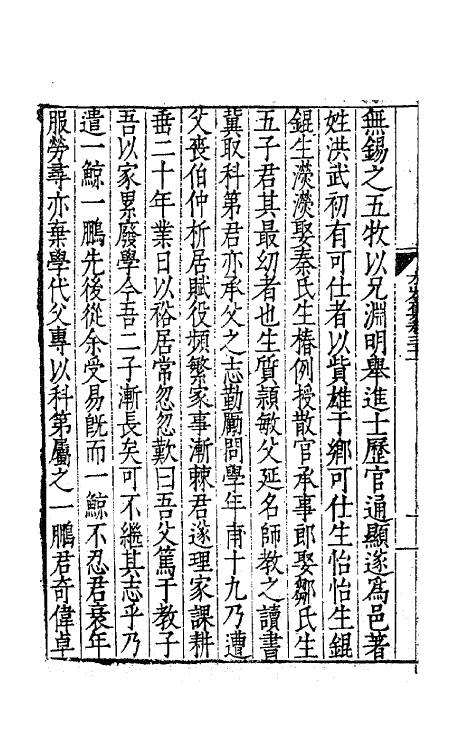 無錫之五牧以兄淵明舉進士歷官通顯遂為邑著
姓洪武初有可仕者以貲雄于鄉可仕生怡怡生錕
錕生濙濙娶秦氏生椿例授散官承事郎娶鄒氏生
五子君其最幼者也生質頴敏父延名師教之讀書
冀取科第君亦承父之志勤勵問學年甫十九乃遭
父喪伯仲析居賦役頻繁家事漸棘君遂理家課耕
畨二十年業日以裕居常忽忽歎曰吾父篤于教子
吾以家累廢學今吾二子漸長矣可不繼其志乎乃
遣一鯨一鵬先後從余受易旣而一鯨不忍君衰年
服勞尋亦棄學代父專以科第屬之一鵬君奇偉卓